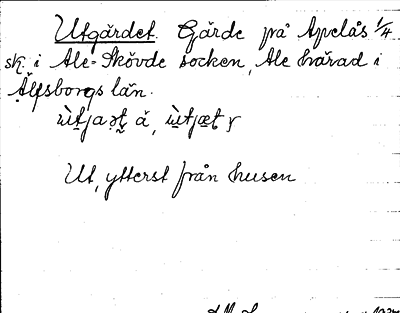 Utgärdet. Gärde på Apelås 1/4
sk. i Ale-Skövde socken, Ale härad i
Älfsborgs län.
Ut, ytterst från husen